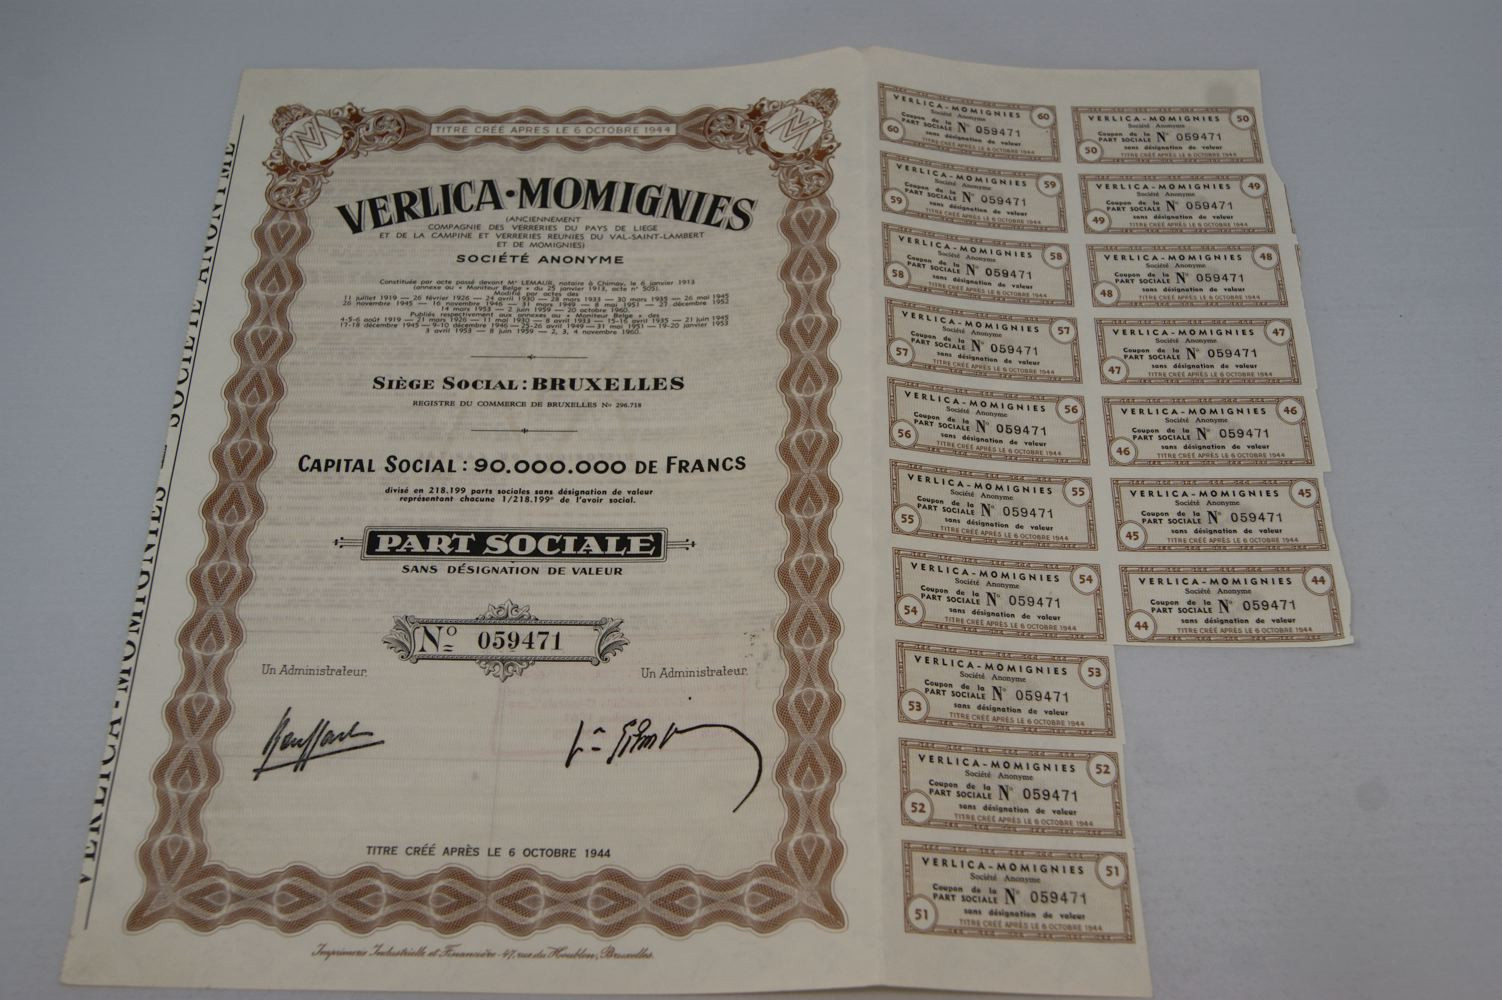 VERLICA-MOMIGNIES — SOCIÉTÉ ANONYME
TITRE CRÉÉ APRES LE 6 OCTOBRE 1944
VERLICA-MOMIGNIES
(ANCIENNEMENT
COMPAGNIE DES VERRERIES DU PAYS DE LIEGE
ET DE LA CAMPINE ET VERRERIES REUNIES DU VAL-SAINT-LAMBERT
ET DE MOMIGNIES)
SOCIÉTÉ ANONYME
Constituée par acte passé devant Me LEMAUR, notaire à Chimay, le 6 janvier 1913
(annexe au « Moniteur Belge » du 25 janvier 1913, acte n° 505).
Modifié par actes des
11 juillet 1919 — 26 février 1926 — 24 avril 1930 — 28 mars 1933 — 30 mars 1935 — 26 mai 1945
26 novembre 1945 — 16 novembre 1946 — 31 mars 1949 — 8 mai 1951 — 27 décembre 1952
14 mars 1953 — 2 juin 1959 — 20 octobre 1960.
Publiés respectivement aux annexes au « Moniteur Belge » des
4-5-6 août 1919 — 21 mars 1926 — 11 mai 1930 — 8 avril 1933 — 15-16 avril 1935 — 21 juin 1945
17-18 décembre 1945 — 9-10 décembre 1946 — 25-26 avril 1949 — 31 mai 1951 — 19-20 janvier 1953
3 avril 1953 — 8 juin 1959 — 2, 3, 4 novembre 1960.
SIÈGE SOCIAL: BRUXELLES
REGISTRE DU COMMERCE DE BRUXELLES No 296.718
CAPITAL SOCIAL: 90.000.000 DE FRANCS
divisé en 218.199 parts sociales sans désignation de valeur
représentant chacune 1/218.199e de l'avoir social.
PART SOCIALE
SANS DÉSIGNATION DE VALEUR
No 059471
Un Administrateur.
Un Administrateur.
TITRE CRÉÉ APRÈS LE 6 OCTOBRE 1944
Imprimerie Industrielle et Financière - 47, rue du Houblon, Bruxelles.
VERLICA-MOMIGNIES 60
Société Anonyme
Coupon de la
60 PART SOCIALE No 059471
sans désignation de valeur
TITRE CRÉÉ APRÈS LE 6 OCTOBRE 1944
VERLICA-MOMIGNIES 59
Société Anonyme
Coupon de la
59 PART SOCIALE No 059471
sans désignation de valeur
TITRE CRÉÉ APRÈS LE 6 OCTOBRE 1944
VERLICA-MOMIGNIES 58
Société Anonyme
Coupon de la
58 PART SOCIALE No 059471
sans désignation de valeur
TITRE CRÉÉ APRÈS LE 6 OCTOBRE 1944
VERLICA-MOMIGNIES 57
Société Anonyme
Coupon de la
57 PART SOCIALE No 059471
sans désignation de valeur
TITRE CRÉÉ APRÈS LE 6 OCTOBRE 1944
VERLICA-MOMIGNIES 56
Société Anonyme
Coupon de la
56 PART SOCIALE No 059471
sans désignation de valeur
TITRE CRÉÉ APRÈS LE 6 OCTOBRE 1944
VERLICA-MOMIGNIES 55
Société Anonyme
Coupon de la
55 PART SOCIALE No 059471
sans désignation de valeur
TITRE CRÉÉ APRÈS LE 6 OCTOBRE 1944
VERLICA-MOMIGNIES 54
Société Anonyme
Coupon de la
54 PART SOCIALE No 059471
sans désignation de valeur
TITRE CRÉÉ APRÈS LE 6 OCTOBRE 1944
VERLICA-MOMIGNIES 53
Société Anonyme
Coupon de la
53 PART SOCIALE No 059471
sans désignation de valeur
TITRE CRÉÉ APRÈS LE 6 OCTOBRE 1944
VERLICA-MOMIGNIES 52
Société Anonyme
Coupon de la
52 PART SOCIALE No 059471
sans désignation de valeur
TITRE CRÉÉ APRÈS LE 6 OCTOBRE 1944
VERLICA-MOMIGNIES 51
Société Anonyme
Coupon de la
51 PART SOCIALE No 059471
sans désignation de valeur
TITRE CRÉÉ APRÈS LE 6 OCTOBRE 1944
VERLICA-MOMIGNIES 50
Société Anonyme
Coupon de la
50 PART SOCIALE No 059471
sans désignation de valeur
TITRE CRÉÉ APRÈS LE 6 OCTOBRE 1944
VERLICA-MOMIGNIES 49
Société Anonyme
Coupon de la
49 PART SOCIALE No 059471
sans désignation de valeur
TITRE CRÉÉ APRÈS LE 6 OCTOBRE 1944
VERLICA-MOMIGNIES 48
Société Anonyme
Coupon de la
48 PART SOCIALE No 059471
sans désignation de valeur
TITRE CRÉÉ APRÈS LE 6 OCTOBRE 1944
VERLICA-MOMIGNIES 47
Société Anonyme
Coupon de la
47 PART SOCIALE No 059471
sans désignation de valeur
TITRE CRÉÉ APRÈS LE 6 OCTOBRE 1944
VERLICA-MOMIGNIES 46
Société Anonyme
Coupon de la
46 PART SOCIALE No 059471
sans désignation de valeur
TITRE CRÉÉ APRÈS LE 6 OCTOBRE 1944
VERLICA-MOMIGNIES 45
Société Anonyme
Coupon de la
45 PART SOCIALE No 059471
sans désignation de valeur
TITRE CRÉÉ APRÈS LE 6 OCTOBRE 1944
VERLICA-MOMIGNIES 44
Société Anonyme
Coupon de la
44 PART SOCIALE No 059471
sans désignation de valeur
TITRE CRÉÉ APRÈS LE 6 OCTOBRE 1944